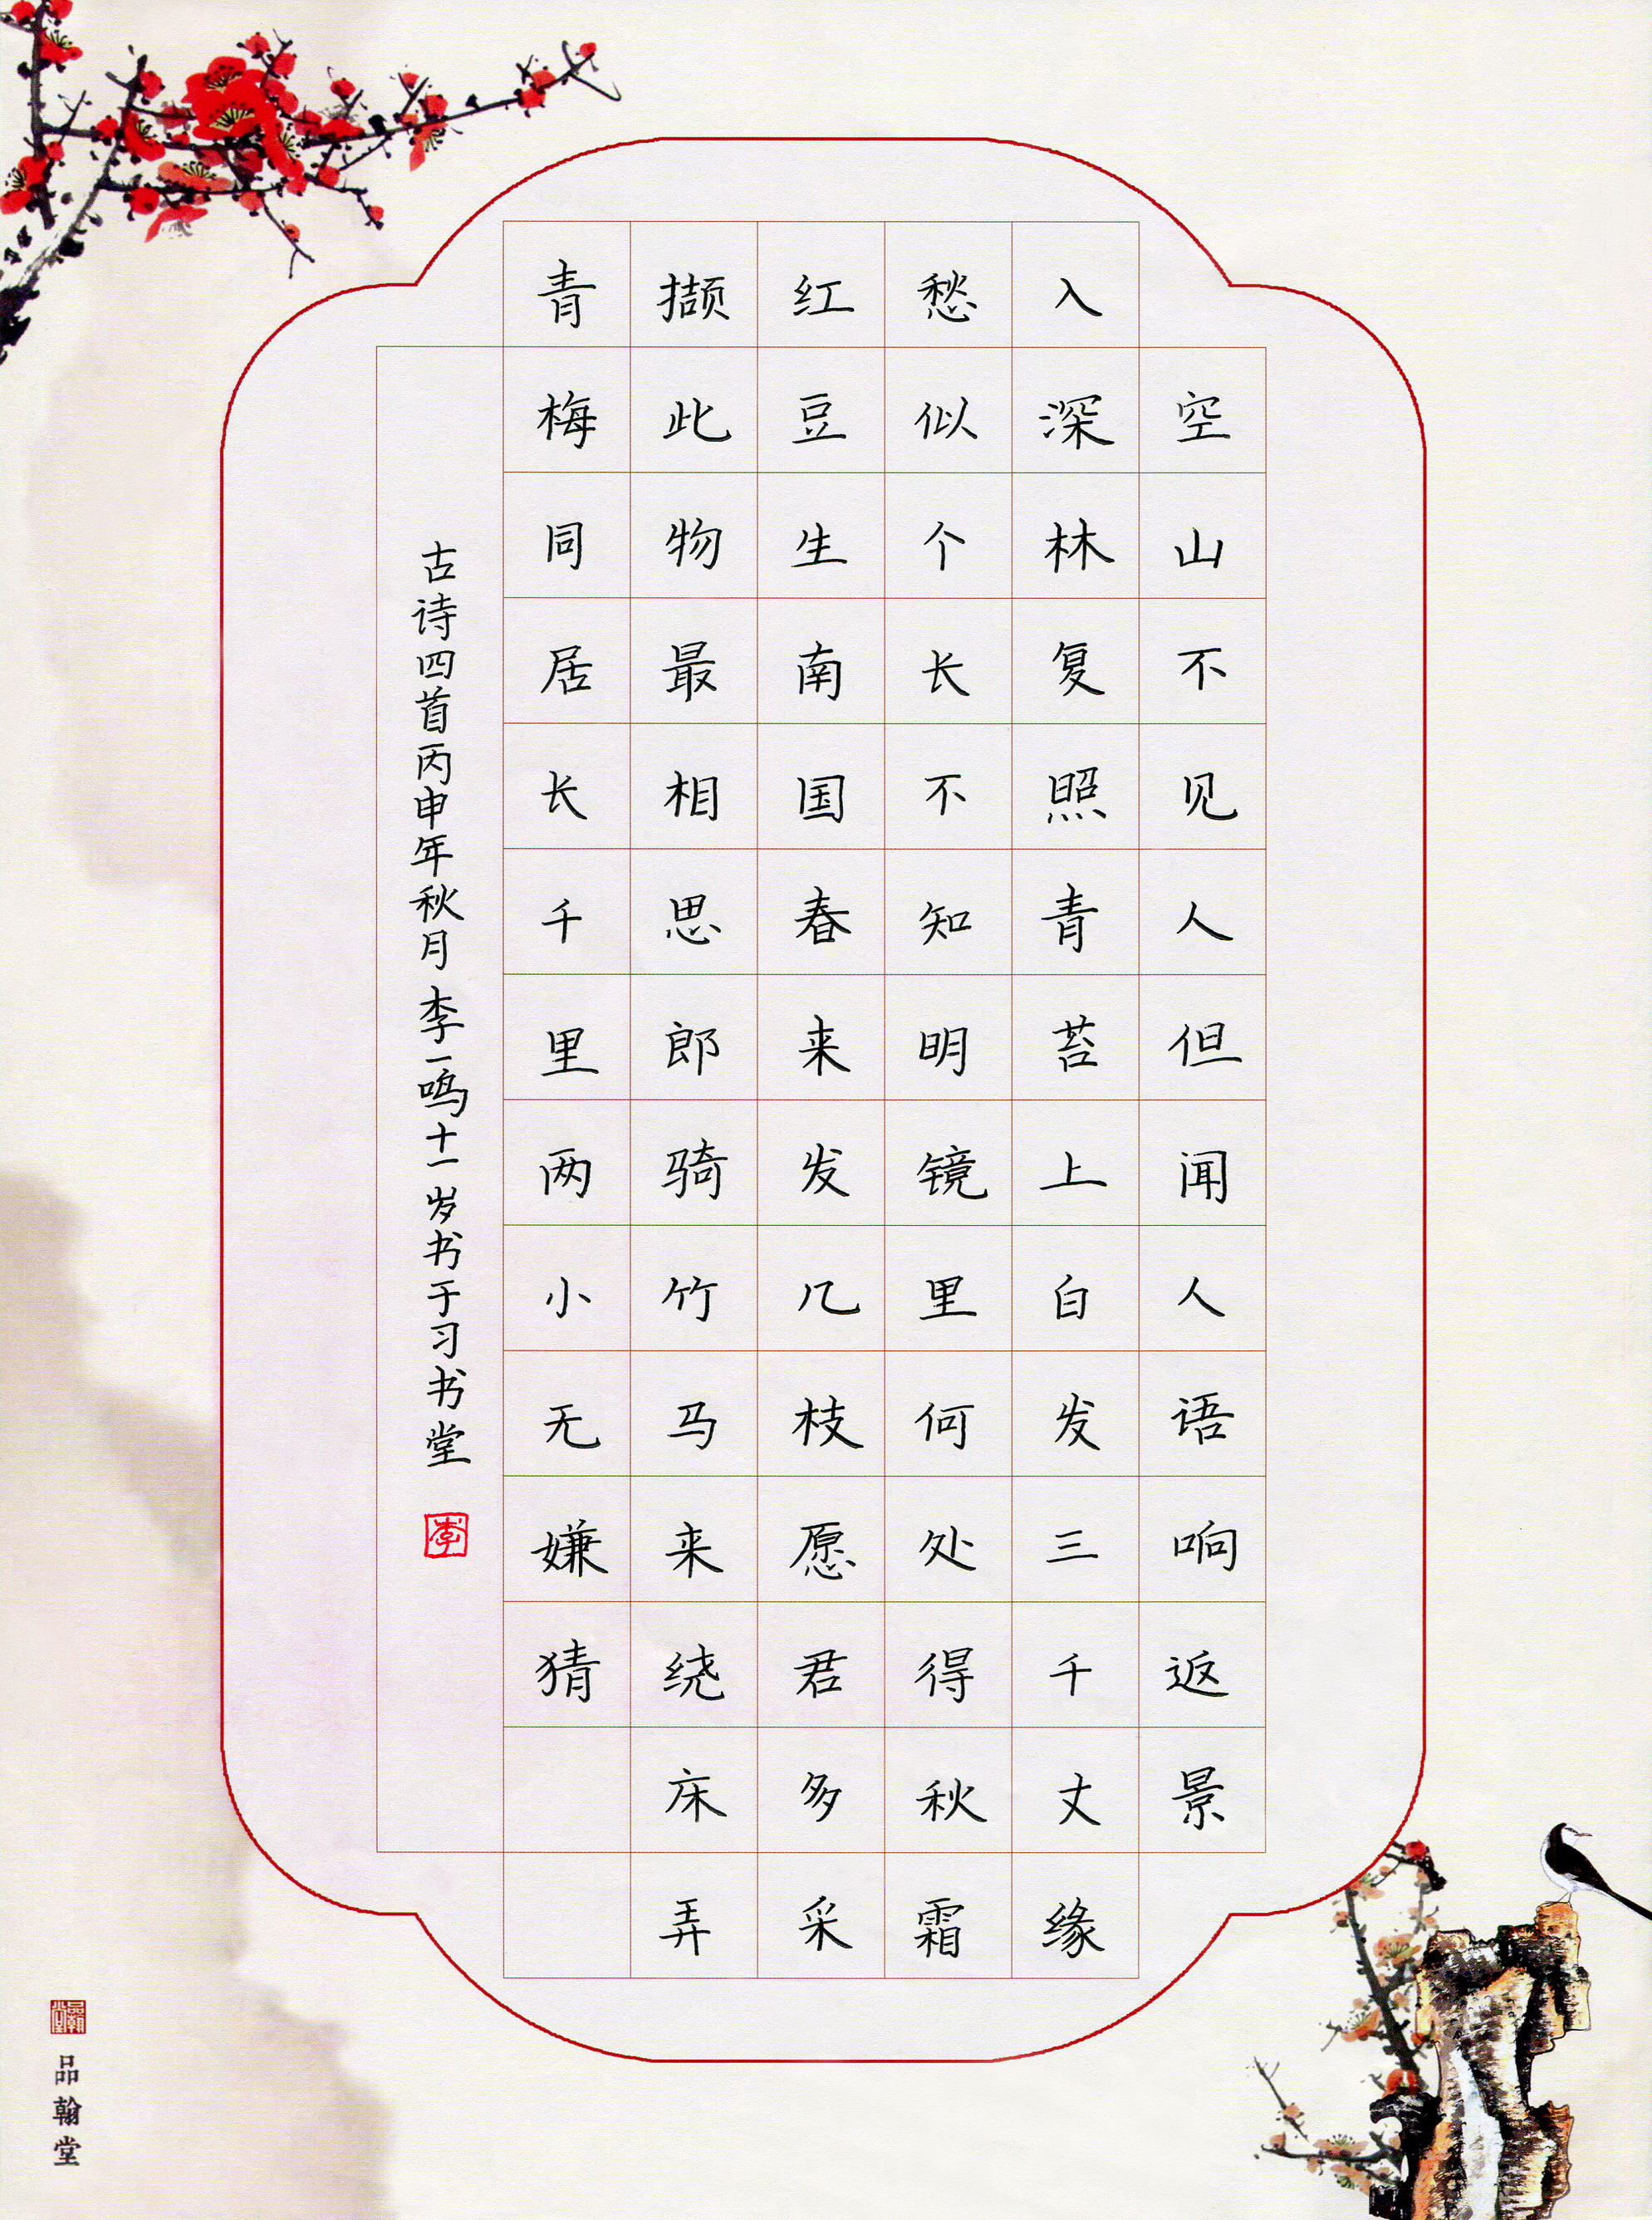 空山不见人但闻人语响返景
入深林复照青苔上白发三千丈缘
愁似个长不知明镜里何处得秋霜
红豆生南国春来发几枝愿君多采
撷此物最相思郎骑竹马来绕床弄
青梅同居长千里两小无嫌猜
古诗四首丙申年秋月李一鸣十一岁书于习书堂
李
品翰堂
品翰堂